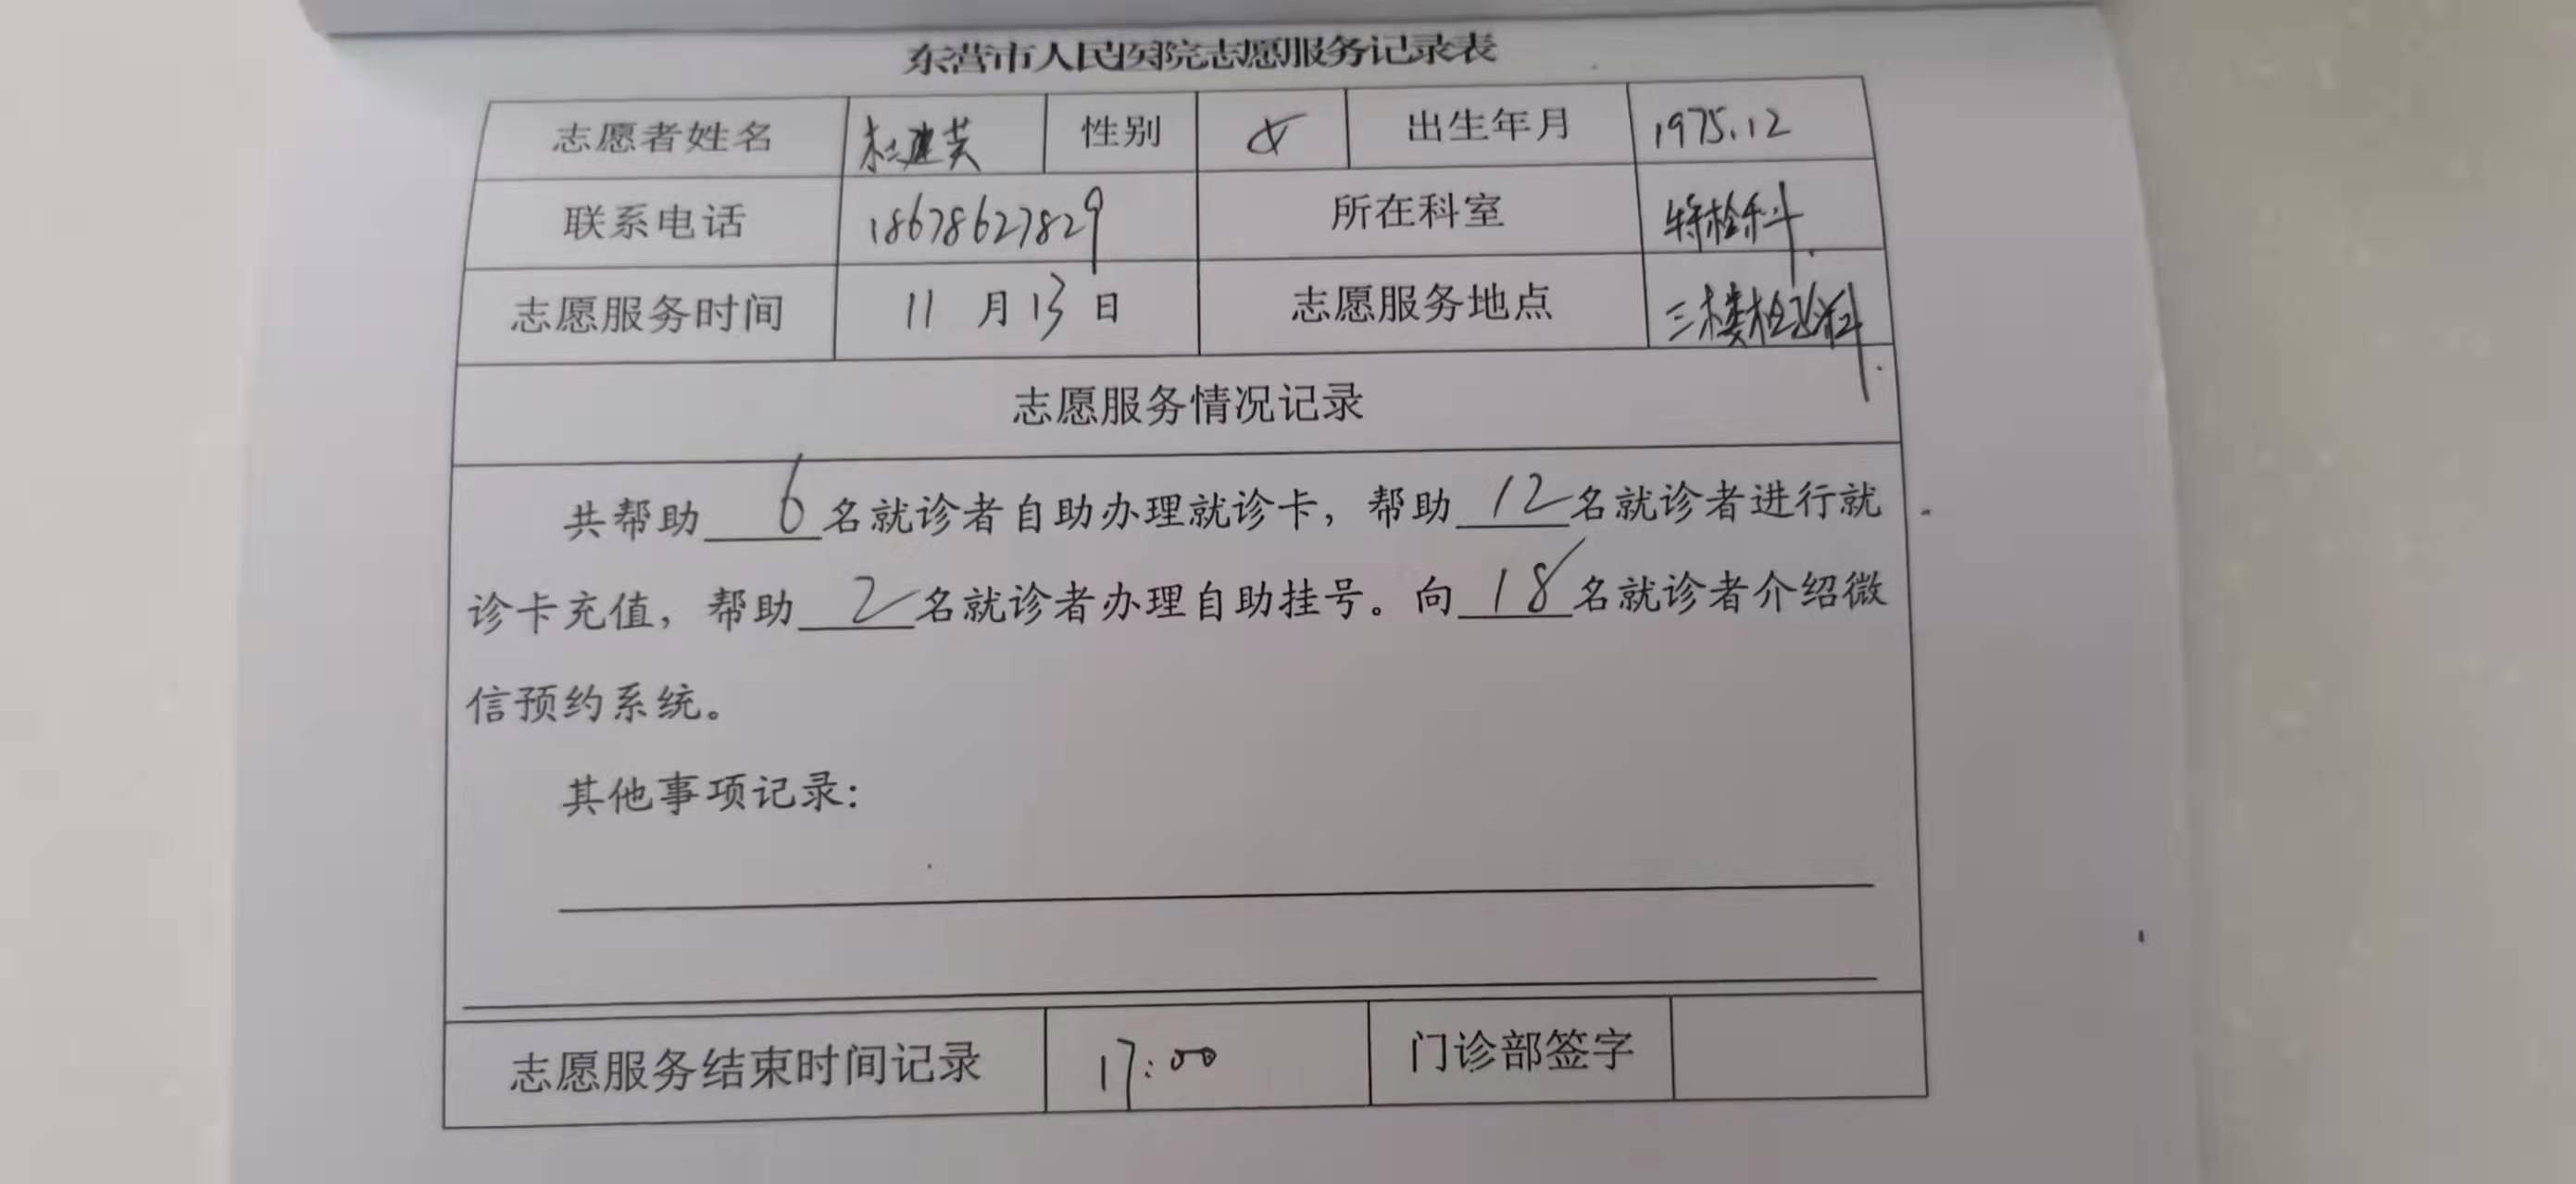 东营市人民医院志愿服务记录表
志愿者姓名 杜建英 性别 女 出生年月 1975.12
联系电话 18678627829 所在科室 特检科
志愿服务时间 11 月 13 日 志愿服务地点 三楼检验科
志愿服务情况记录
共帮助 6 名就诊者自助办理就诊卡，帮助 12 名就诊者进行就
诊卡充值，帮助 2 名就诊者办理自助挂号。向 18 名就诊者介绍微
信预约系统。
其他事项记录：
志愿服务结束时间记录 17:00 门诊部签字